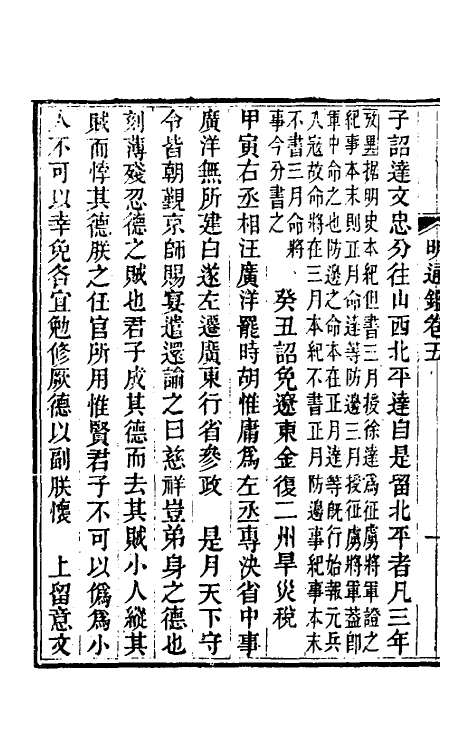 明通鑑卷五
一
子詔達文忠分往山西北平達自是留北平者凡三年
攷異據明史本紀但書三月授徐達爲征虜將軍證之
紀事本末則正月命達等防邊三月授征虜將軍蓋卽
軍中命之也防邊之命本在正月達等旣行始報元兵
入寇故命將在三月本紀不書正月防邊事紀事本末
不書三月命將
事今分書之
癸丑詔免遼東金復二州旱災稅
甲寅右丞相汪廣洋罷時胡惟庸爲左丞專決省中事
廣洋無所建白遂左遷廣東行省參政　是月天下守
令皆朝觀京師賜宴遣還諭之曰慈祥豈弟身之德也
刻薄殘忍德之賊也君子成其德而去其賊小人縱其
賊而悖其德朕之任官所用惟賢君子不可以僞爲小
人不可以幸免各宜勉修厥德以副朕懷　上留意文